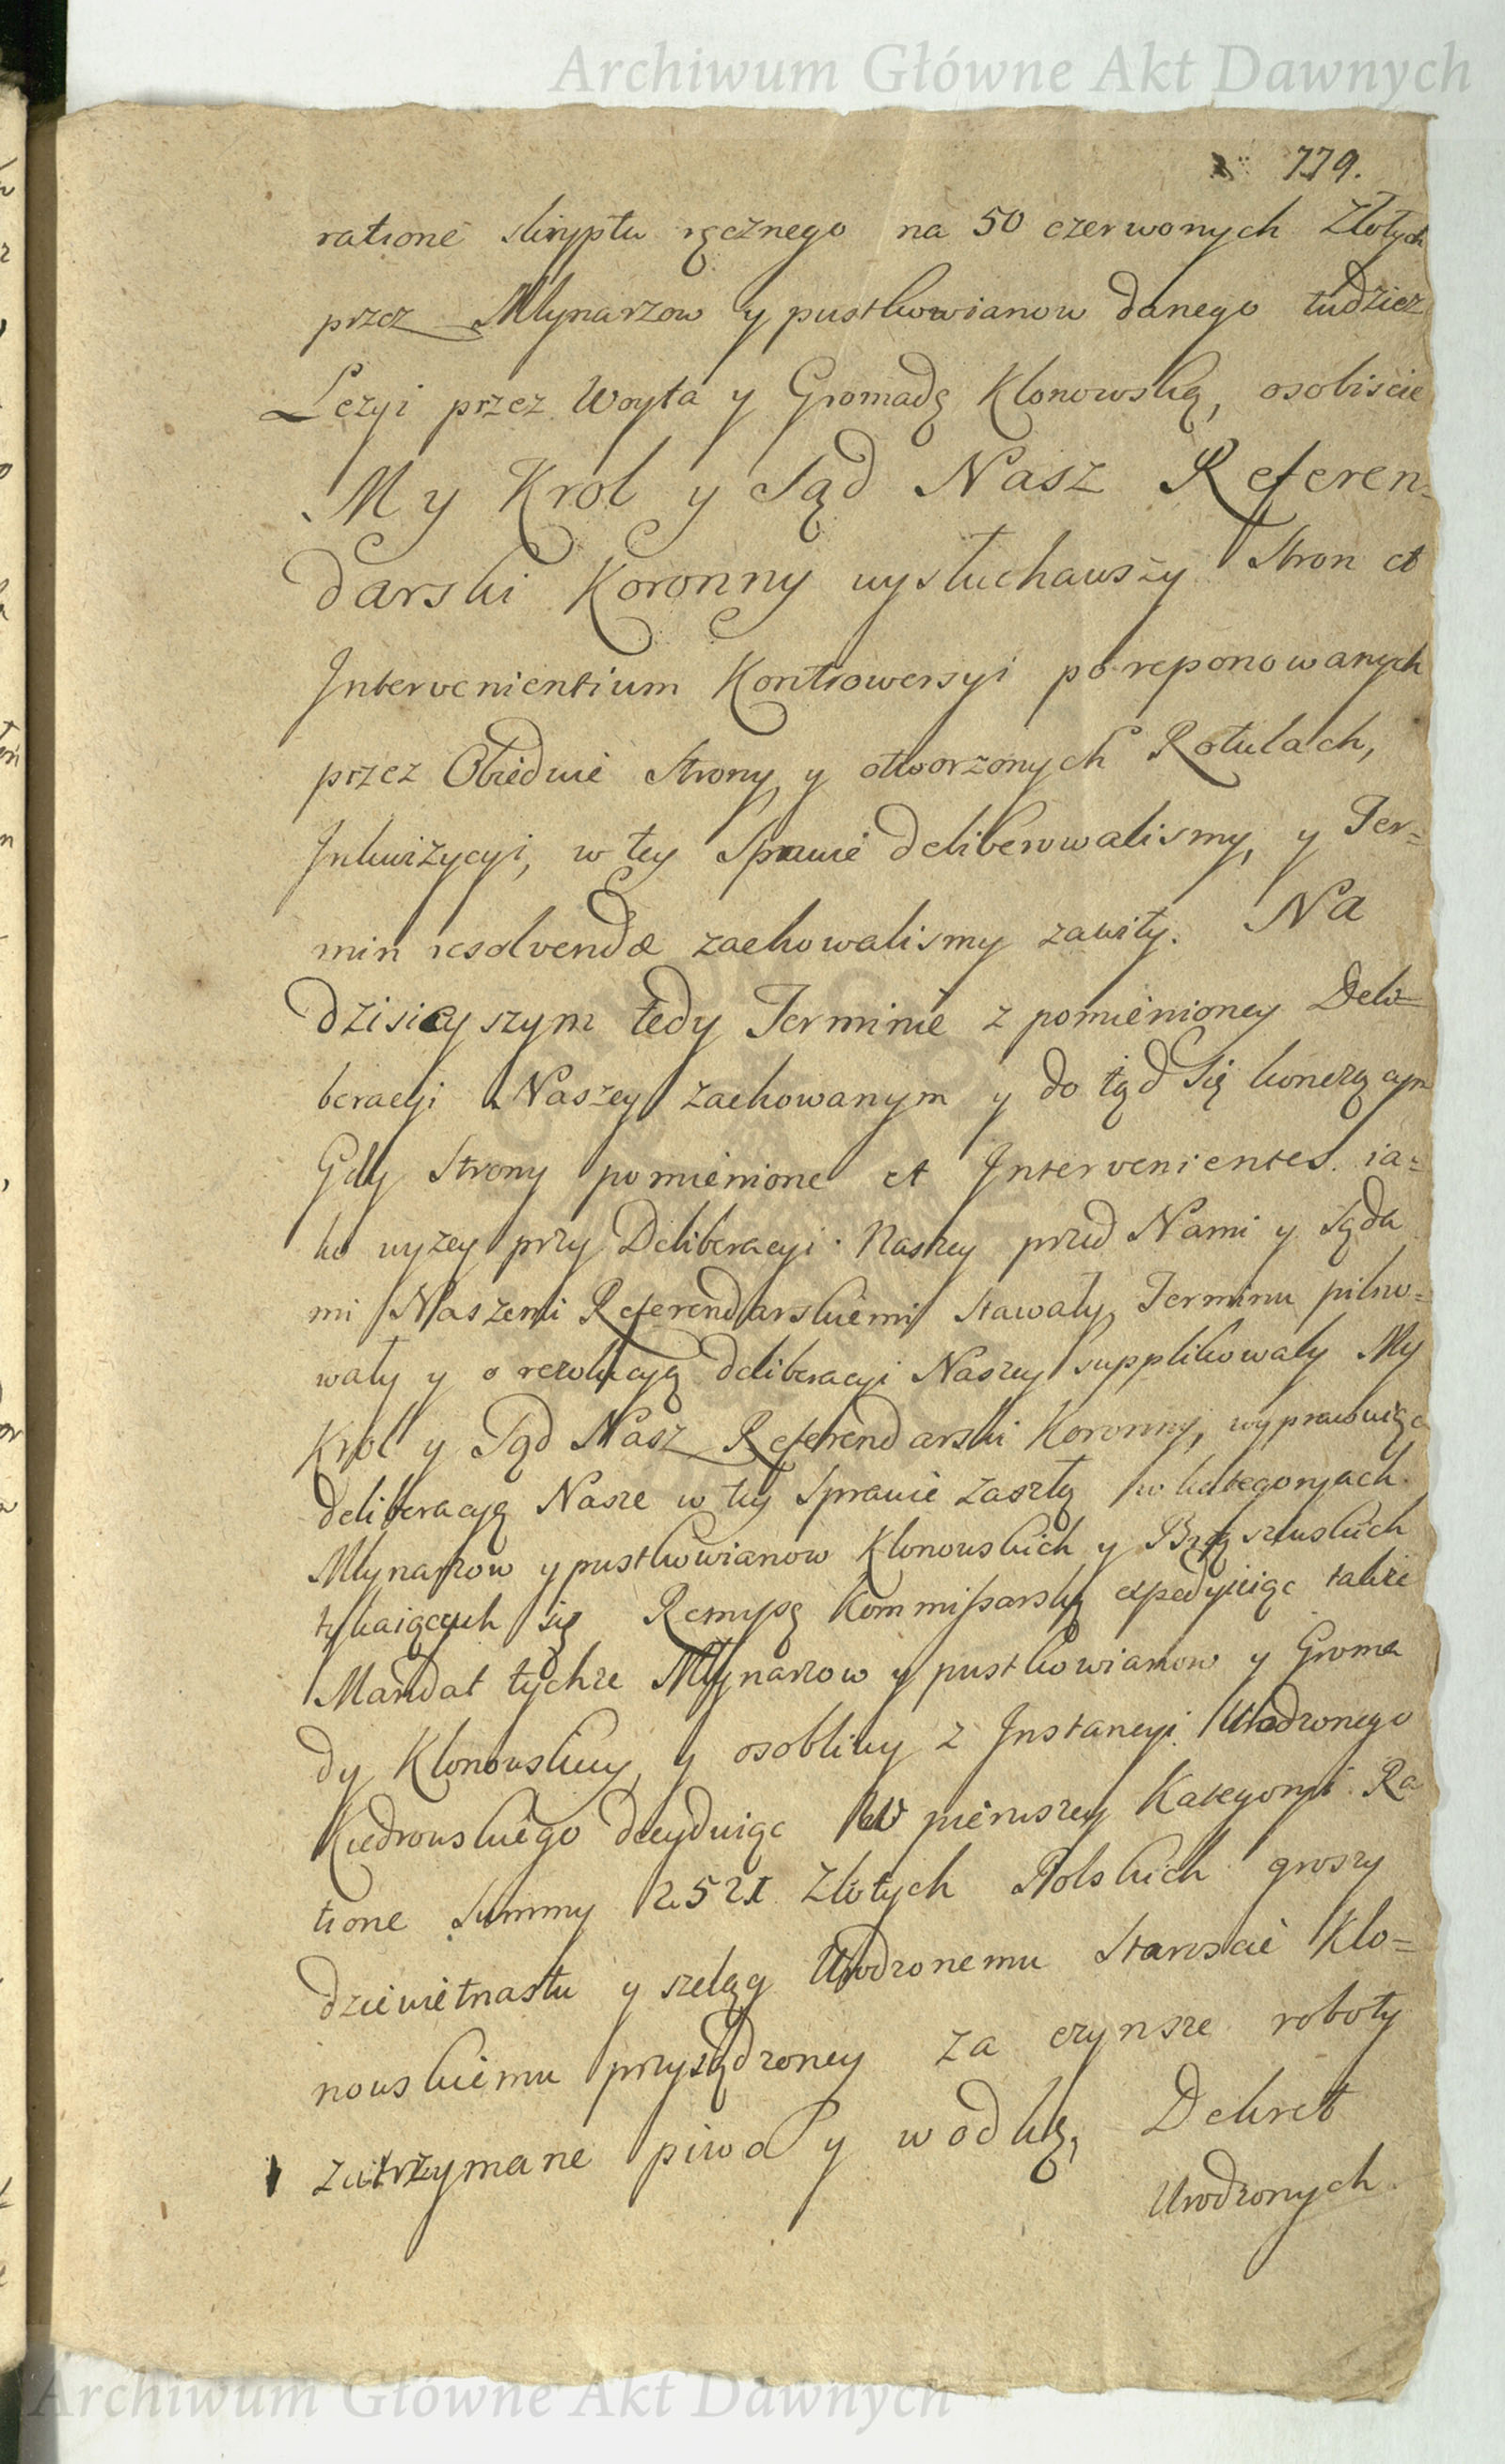 Archiwum Główne Akt Dawnych
779.
ratione skryptu ręcznego na 50 czerwonych Złotych
przez Młynarzow y pustkowianow danego tudziez
Lezyi przez Woyta y Gromadę Klonowską, osobiscie
My Krol y Sąd Nasz Referen-
darski Koronny wysłuchawszy Stron et
Intervenientium Kontrowersyi po reponowanych
przez Obiedwie Strony y otworzonych Rotulach,
Inkwizycyi, w tey Sprawie deliberowalismy, y Ter=
min resolvendæ zachowalismy zawity. Na
dzisieyszym tedy Terminie z pomienioney Deli=
beracyi Naszey zachowanym y do tąd się konczącym
Gdy Strony pomienione et Intervenientes ia=
ko wyzey przy Deliberacyi Naszey przed Nami y Sąda
mi Naszemi Referendarskiemi stawały, Terminu pilno=
wały y o rezolucyą deliberacyi Naszey supplikowały My
Krol y Sąd Nasz Referendarski Koronny, wyprawuiąc
deliberacyą Nasze w tey Sprawie zaszłą w kategoryach
Młynarzow y pustkowianow Klonowskich y
tykaiących się Remissę Kommissarską expedyiąc także
Mandat tychze Młynarzow y pustkowianow y Groma
dy Klonowskiey, y osobliwy z Instancyi Urodzonego
Kiedrowskiego decyduiąc w pierwszey Kategoryi Ra
tione Summy 2521 Złotych Polskich groszy
dziewietnastu y szeląg Urodzonemu Staroscie Klo=
nowskiemu przysądzoney za czynsze roboty
zatrzymane piwo y wodkę, Dekret
Urodzonych
Archiwum Główne Akt Dawnych